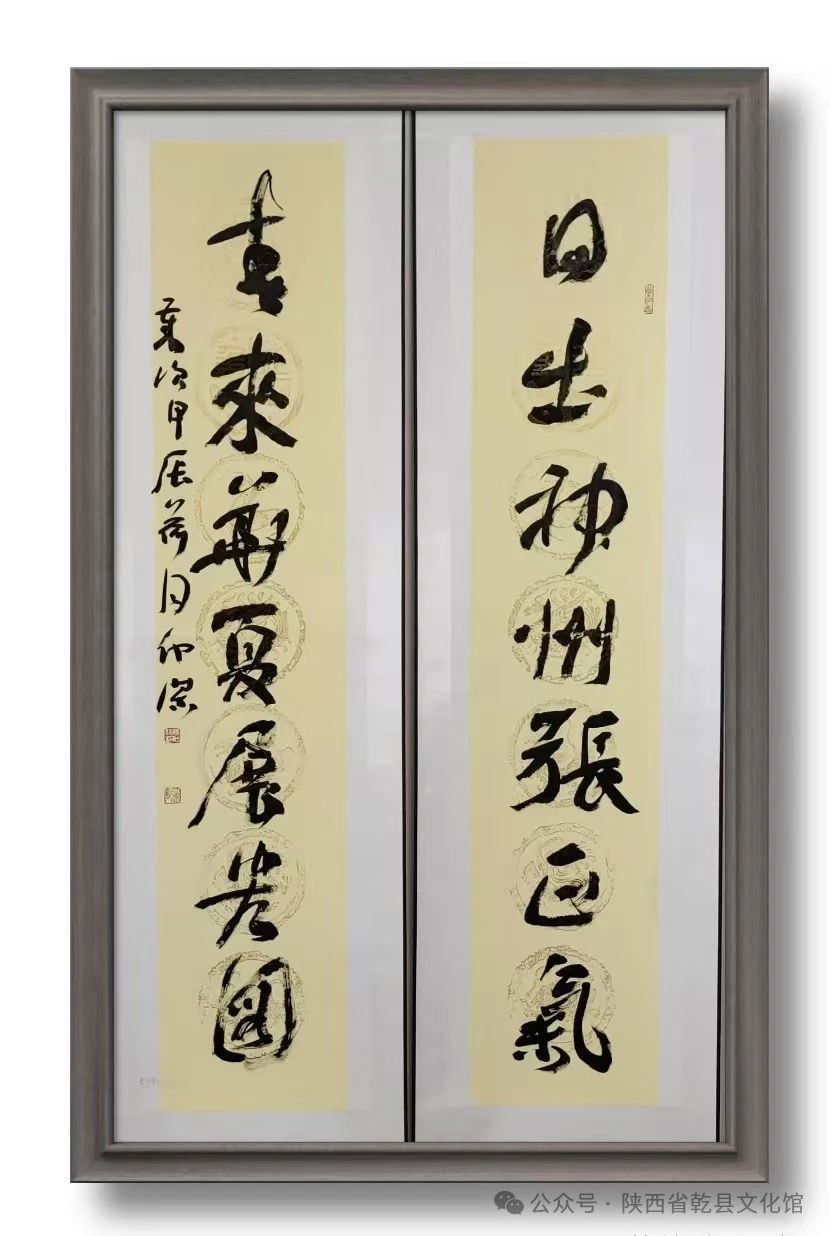 日出神州張正氣
喜來華夏展宏圖
歲次甲辰荷月
公众号 · 陕西省乾县文化馆